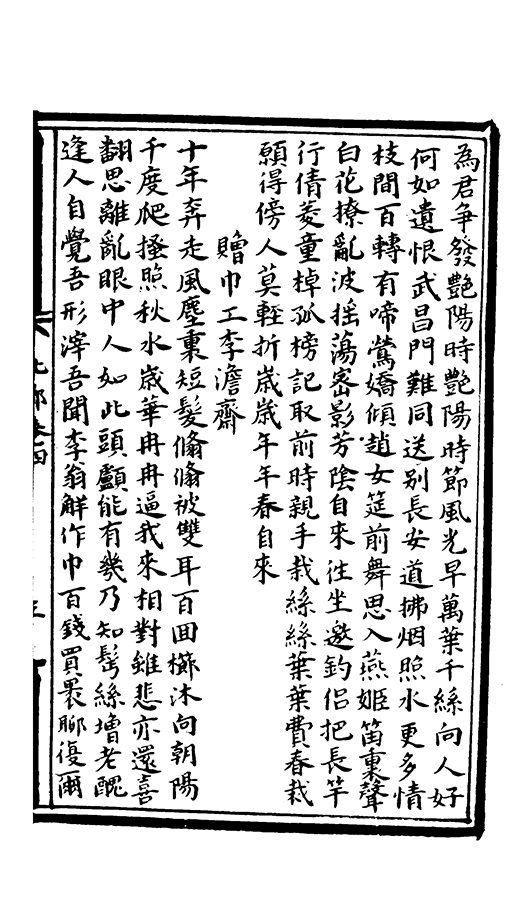 為君爭發艷陽時艷陽時節風光早萬葉千絲向人好
何如遺恨武昌門難同送别長安道拂烟照水更多情
枝間百轉有啼鶯嬌傾趙女筵前舞思入燕姬笛裏聲
白花撩亂波摇蕩密影芳陰自來往坐邀釣侣把長竿
行倩菱童棹孤榜記取前時親手栽絲絲葉葉費春栽
願得傍人莫輕折歲歲年年春自來
贈巾工李澹齋
十年奔走風塵裏短髮翛翛被雙耳百回櫛沐向朝陽
千度爬搔照秋水歲華冉冉逼我來相對雖悲亦還喜
翻思離亂眼中人如此頭顱能有幾乃知髩絲增老醜
逢人自覺吾形滓吾聞李翁解作巾百錢買裹聊復爾